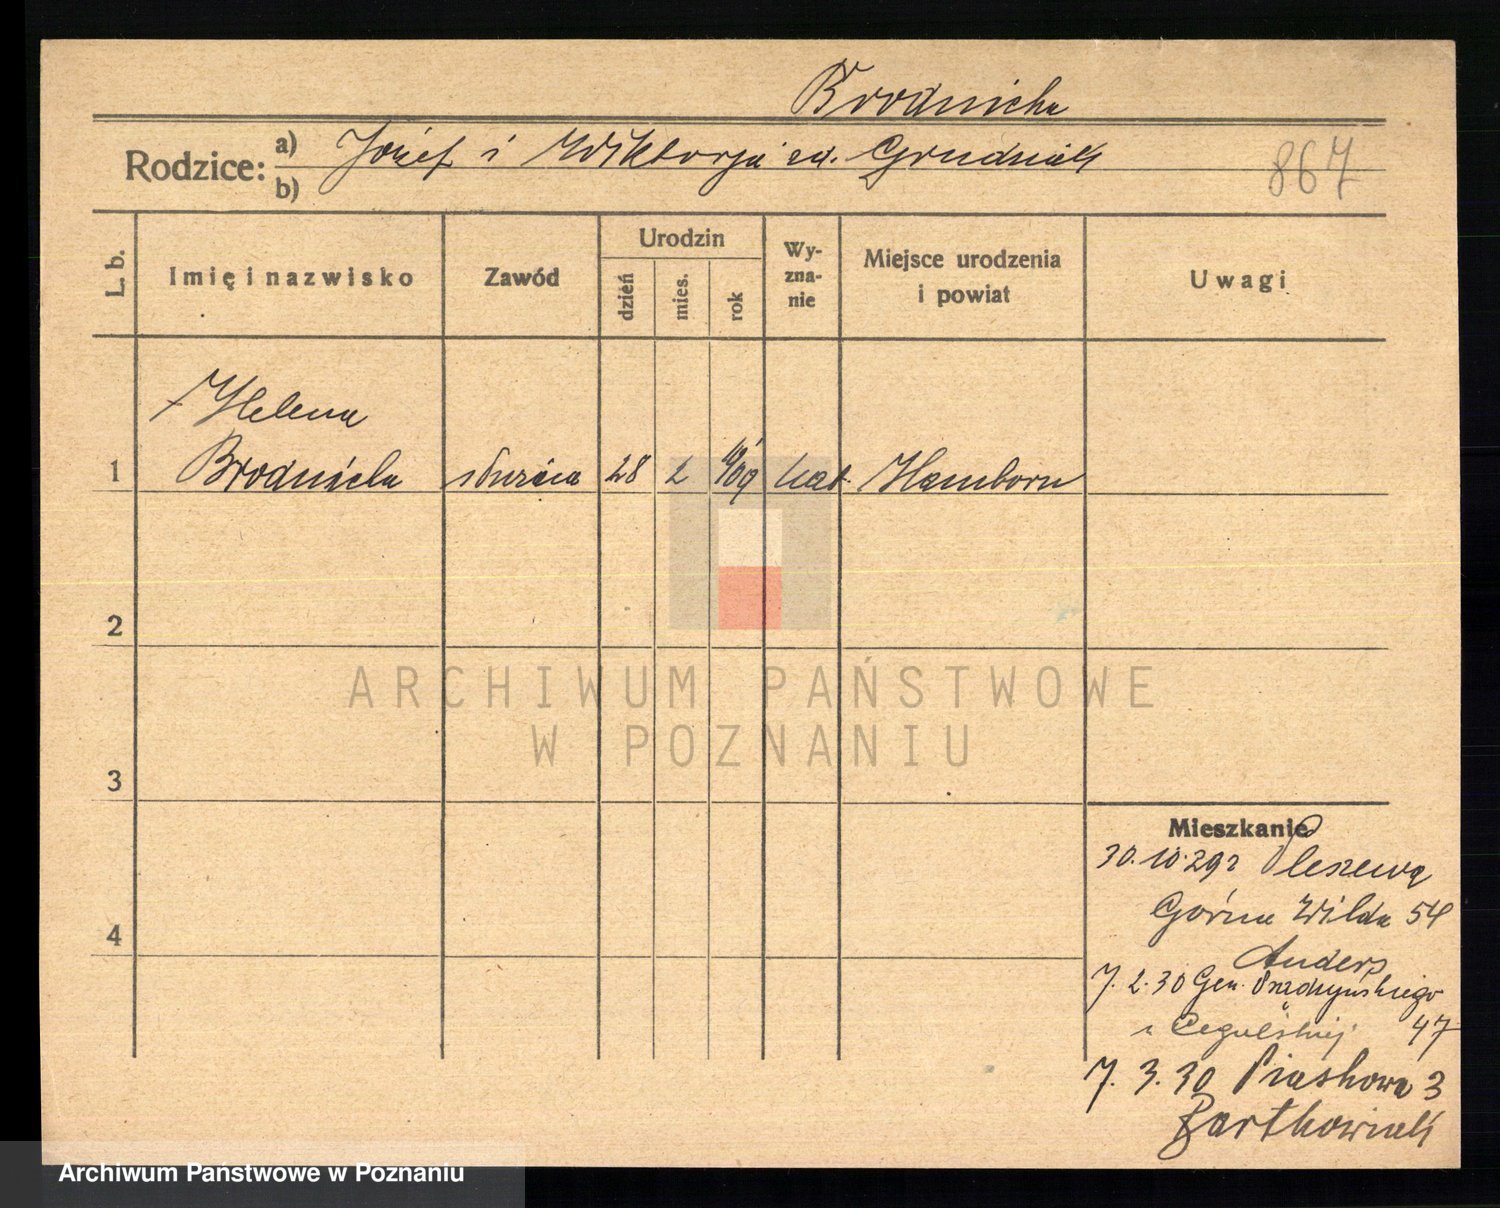 Brodnicka
Rodzice: a) Józef i Wiktorja zd. Grudniak
b)
867
L. b.
Imię i nazwisko
Zawód
Urodzin
dzień
mies.
rok
Wy-
zna-
nie
Miejsce urodzenia
i powiat
Uwagi
Helena
1 Brodnicka służąca 28 2 1909 kat. Hamborn
2
3
4
Mieszkanie
30.10.29 z Pleszewa
Górna Wilda 54
Anders
7.2.30 Gen. Prądzyńskiego
47
7.3.30 Piaskowa 3
Bartkowiak
ARCHIWUM PAŃSTWOWE
W POZNANIU
Archiwum Państwowe w Poznaniu